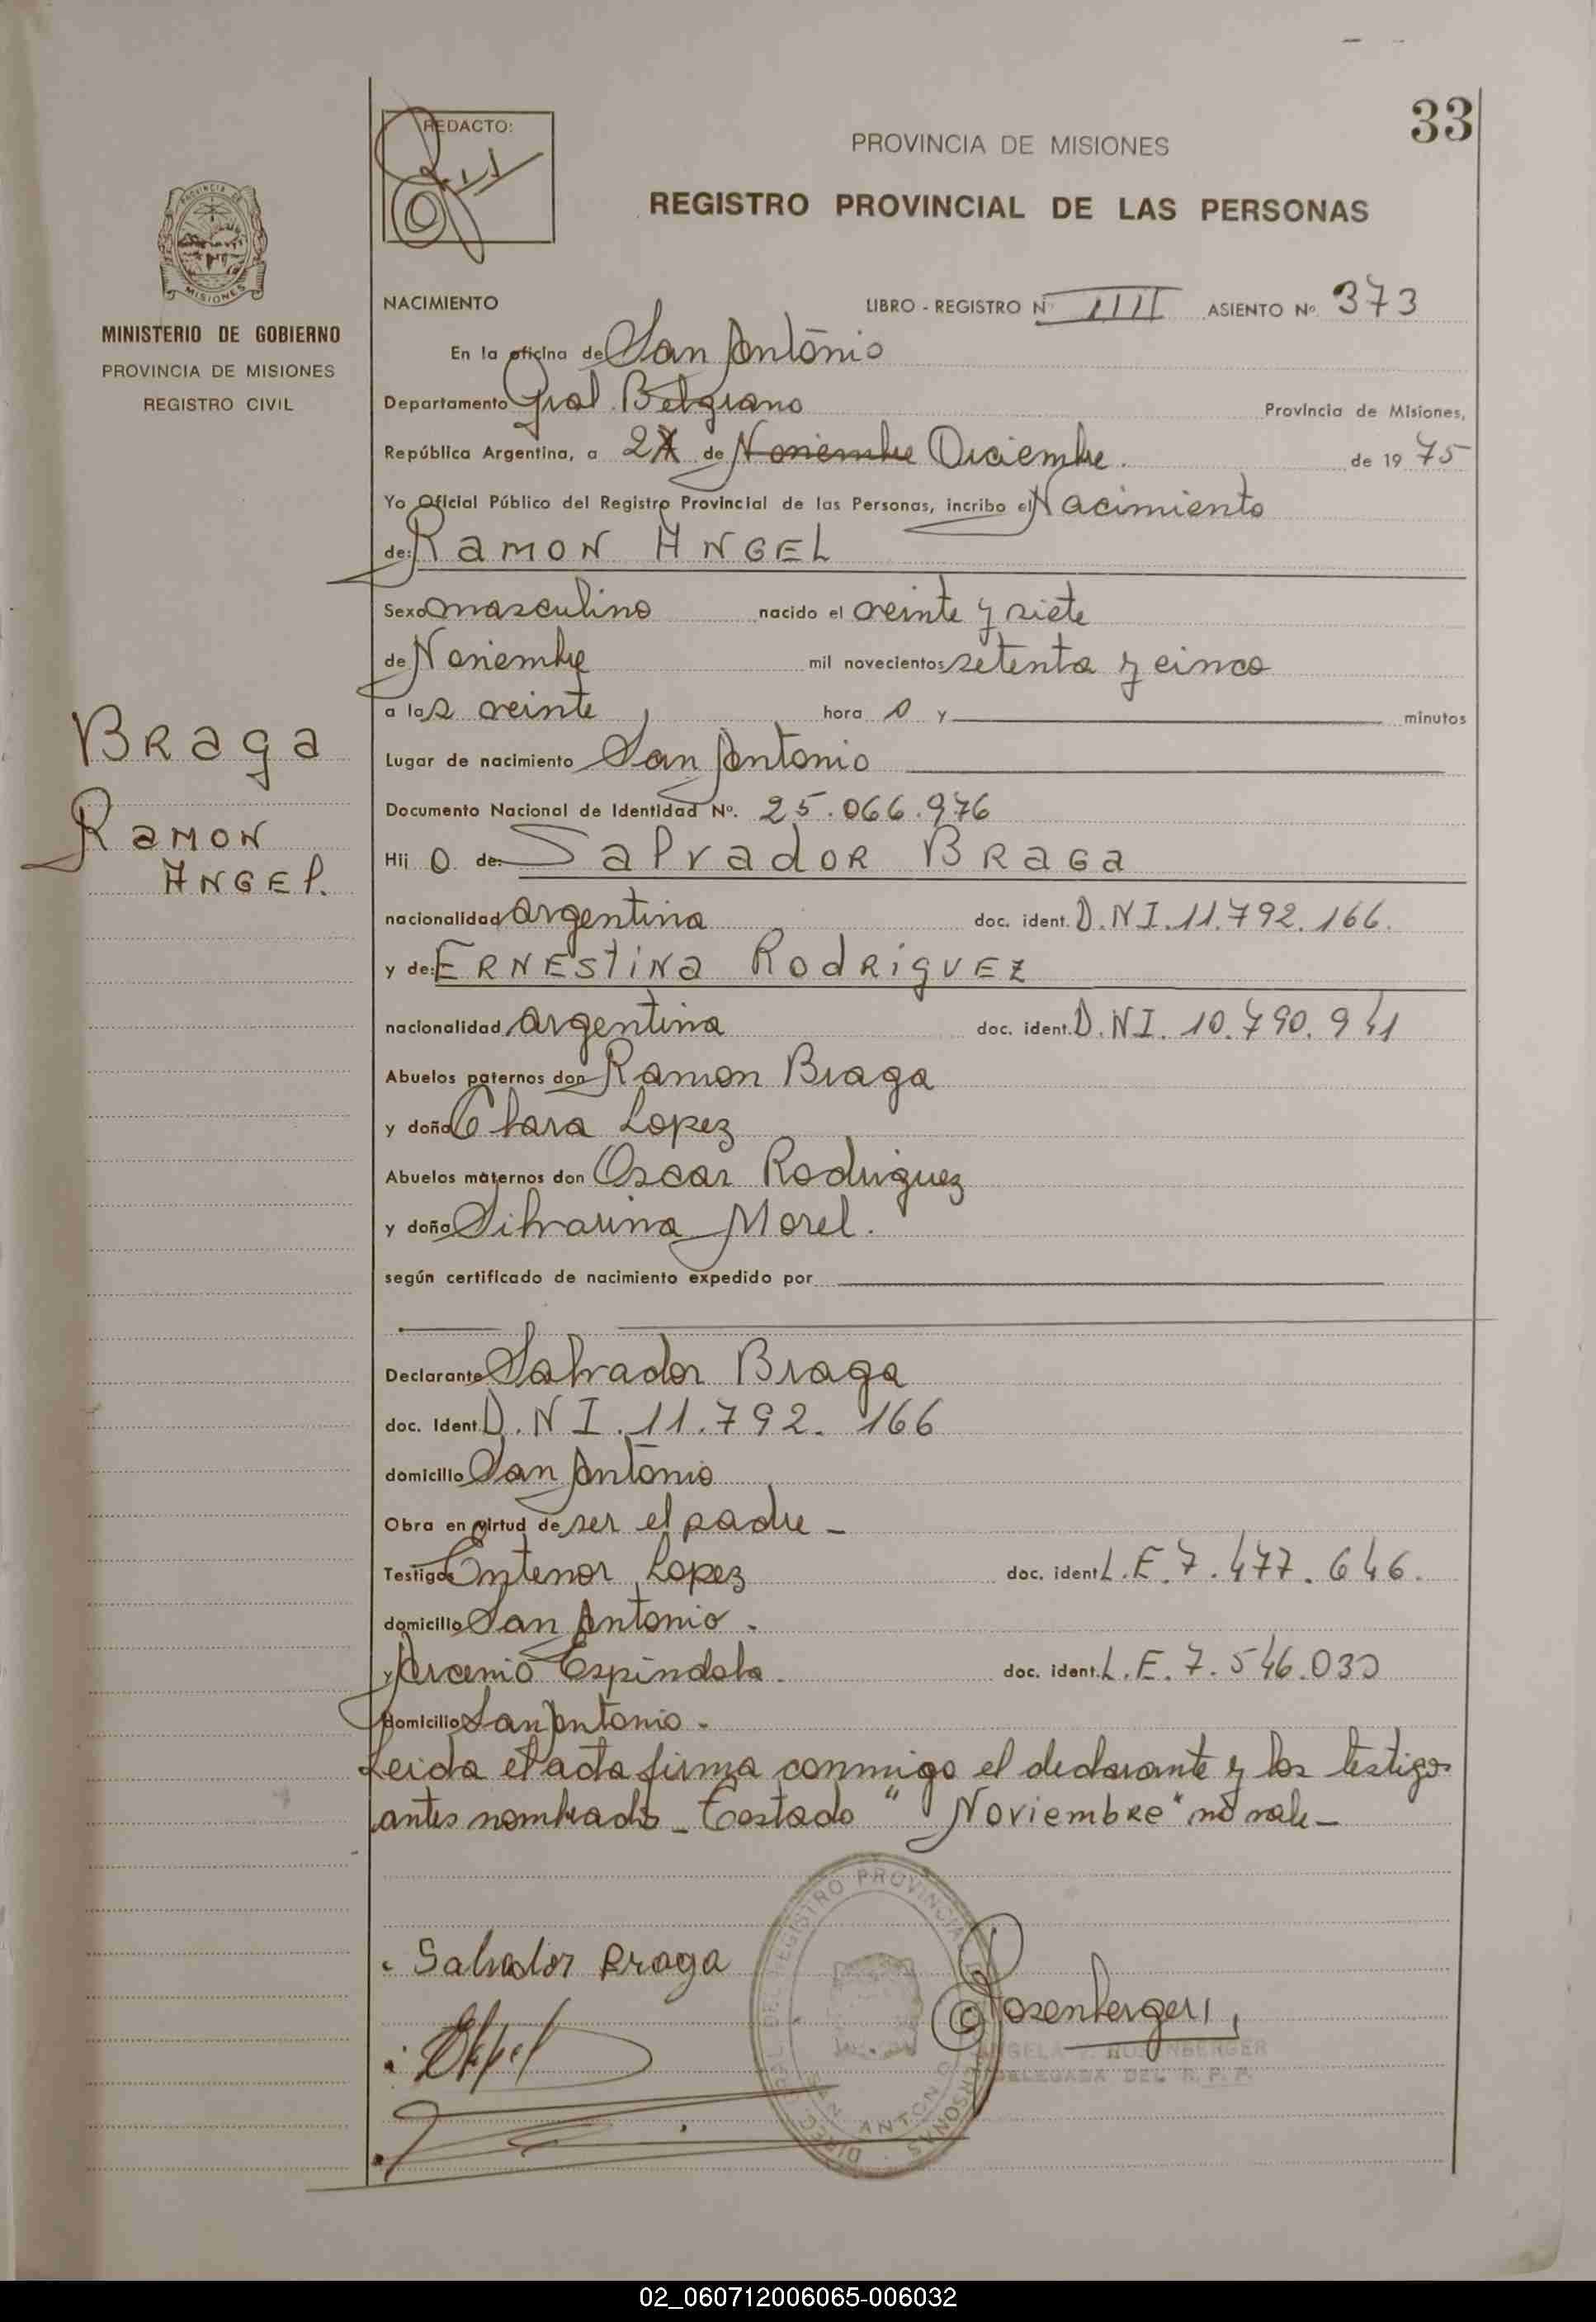 33
REDACTO:
PROVINCIA DE MISIONES
REGISTRO PROVINCIAL DE LAS PERSONAS
PROVINCIA DE
MISIONES
MINISTERIO DE GOBIERNO
PROVINCIA DE MISIONES
REGISTRO CIVIL
NACIMIENTO LIBRO - REGISTRO Nº IIII ASIENTO Nº. 373
En la oficina de San Antonio
Departamento Gral. Belgrano Provincia de Misiones,
República Argentina, a 2 de Noviembre Diciembre. de 19 75
Yo Oficial Público del Registro Provincial de las Personas, incribo el Nacimiento
de: RAMON ANGEL
Sexo masculino nacido el veinte y siete
de Noviembre mil novecientos setenta y cinco
a las veinte hora s y minutos
Lugar de nacimiento San Antonio
Documento Nacional de Identidad Nº. 25.066.976
Braga
RAMON
ANGEL.
Hij o de: Salvador BRAGA
nacionalidad argentina doc. ident. D.N.I. 11.792.166.
y de: ERNESTINA RODRIGUEZ
nacionalidad argentina doc. ident. D.N.I. 10.790.941
Abuelos paternos don Ramon Braga
y doña Clara Lopez
Abuelos maternos don Oscar Rodriguez
y doña Silvarina Morel.
según certificado de nacimiento expedido por
Declarante Salvador Braga
doc. Ident. D.N.I. 11.792.166
domicilio San Antonio
Obra en virtud de ser el padre -
Testigos Entenor Lopez doc. ident. L.E. 7.477.646.
domicilio San Antonio.
y Arcenio Espindola. doc. ident. L.E. 7.546.030
domicilio San Antonio -
Leida el acta firma conmigo el declarante y los testigos
antes nombrados - Testado "Noviembre" no vale -
Salvador Braga
Rosenberger
ANGELA ROSENBERGER
DELEGADA DEL R. P. P.
DIREC. GRAL. DEL REGISTRO PROVINCIAL PERSONAS
SAN ANTONIO
02_060712006065-006032